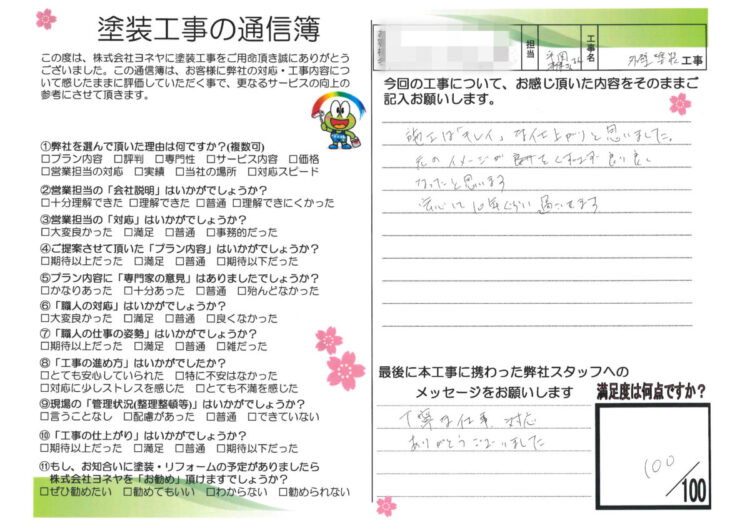 塗装工事の通信簿
この度は、株式会社ヨネヤに塗装工事をご用命頂き誠にありがとう
ございました。この通信簿は、お客様に弊社の対応・工事内容につ
いて感じたままに評価していただく事で、更なるサービスの向上の
参考にさせて頂きます。
①弊社を選んで頂いた理由は何ですか?(複数可)
□プラン内容 □評判 □専門性 □サービス内容 □価格
□営業担当の対応 □実績 □当社の場所 □対応スピード
②営業担当の「会社説明」はいかがでしょうか?
□十分理解できた □理解できた □普通 □理解できにくかった
③営業担当の「対応」はいかがでしょうか?
□大変良かった □満足 □普通 □事務的だった
④ご提案させて頂いた「プラン内容」はいかがでしょうか?
□期待以上だった □満足 □普通 □期待以下だった
⑤プラン内容に「専門家の意見」はありましたでしょうか?
□かなりあった □十分あった □普通 □殆んどなかった
⑥「職人の対応」はいかがでしょうか?
□大変良かった □満足 □普通 □良くなかった
⑦「職人の仕事の姿勢」はいかがでしょうか?
□期待以上だった □満足 □普通 □雑だった
⑧「工事の進め方」はいかがでしたか?
□とても安心していられた □特に不安はなかった
□対応に少しストレスを感じた □とても不満を感じた
⑨現場の「管理状況(整理整頓等)」はいかがでしょうか?
□言うことなし □配慮があった □普通 □できていない
⑩「工事の仕上がり」はいかがでしょうか?
□期待以上だった □満足 □普通 □期待以下だった
⑪もし、お知合いに塗装・リフォームの予定がありましたら
株式会社ヨネヤを「お勧め」頂けますでしょうか?
□ぜひ勧めたい □勧めてもいい □わからない □勧められない
担当
工事名
外壁塗装工事
今回の工事について、お感じ頂いた内容をそのままご
記入お願いします。
施工は「キレイ」な仕上がりと思いました。
元のイメージが
なったと思います
安心して10年ぐらい過ごせます
最後に本工事に携わった弊社スタッフへの
メッセージをお願いします
丁寧な仕事 対応
ありがとうございました
満足度は何点ですか?
100
/100